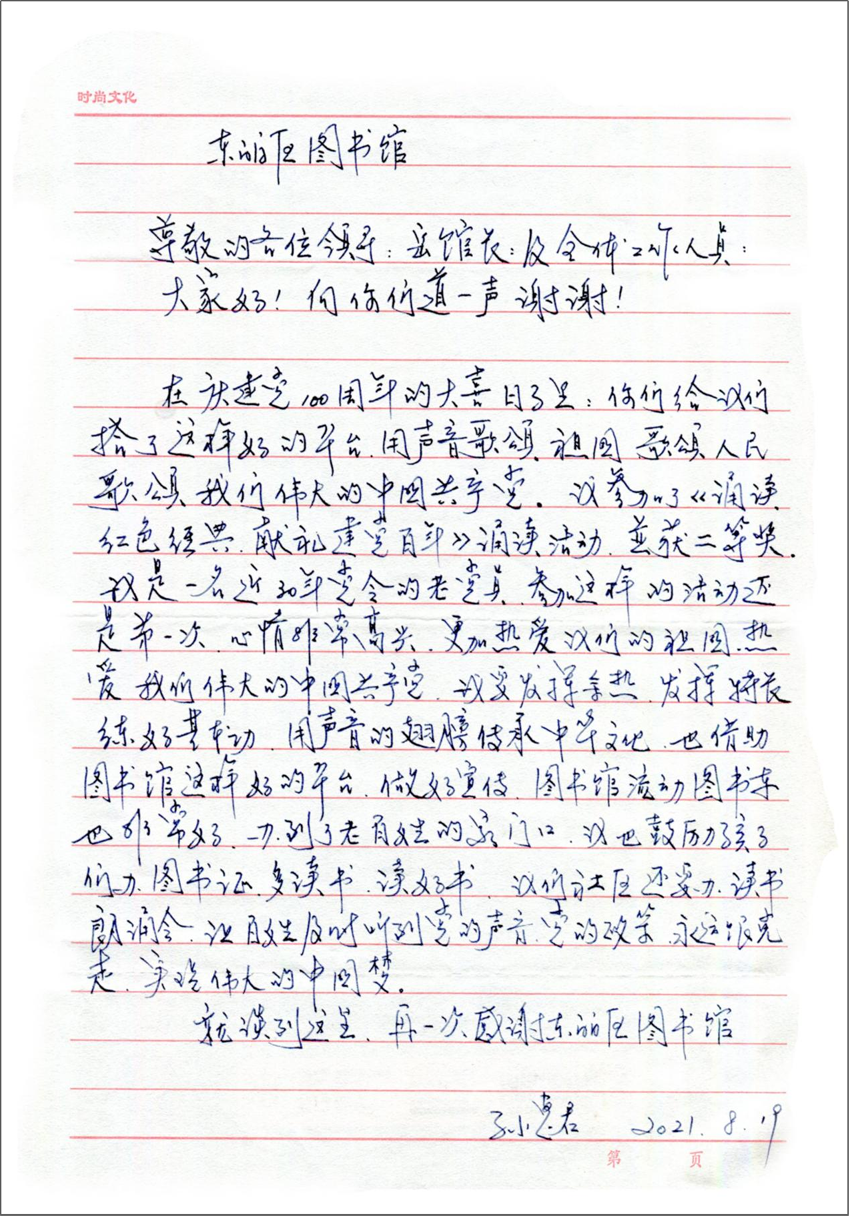 时尚文化
东丽区图书馆
尊敬的各位领导：岳馆长：及全体工作人员：
大家好！向你们道一声谢谢！
在庆建党100周年的大喜日子里：你们给我们
搭了这样好的平台.用声音歌颂.祖国 歌颂人民
歌颂我们伟大的中国共产党。我参加了《诵读
红色经典.献礼建党百年》诵读活动.并获二等奖.
我是一名近30年党令的老党员.参加这样的活动还
是第一次.心情非常高兴.更加热爱我们的祖国.热
爱我们伟大的中国共产党.我要发挥余热.发挥特长
练好基本功.用声音的翅膀传承中华文化.也借助
图书馆这样好的平台.做好宣传.图书馆流动图书车
也非常好.办到了老百姓的家门口.我也鼓励孩子
们办.图书证.多读书.读好书.我们社区还要办.读书
朗诵会.让百姓及时听到党的声音.党的政策.永远跟党
走.实现伟大的中国梦。
就谈到这里.再一次感谢东丽区图书馆
2021.8.19
第 页